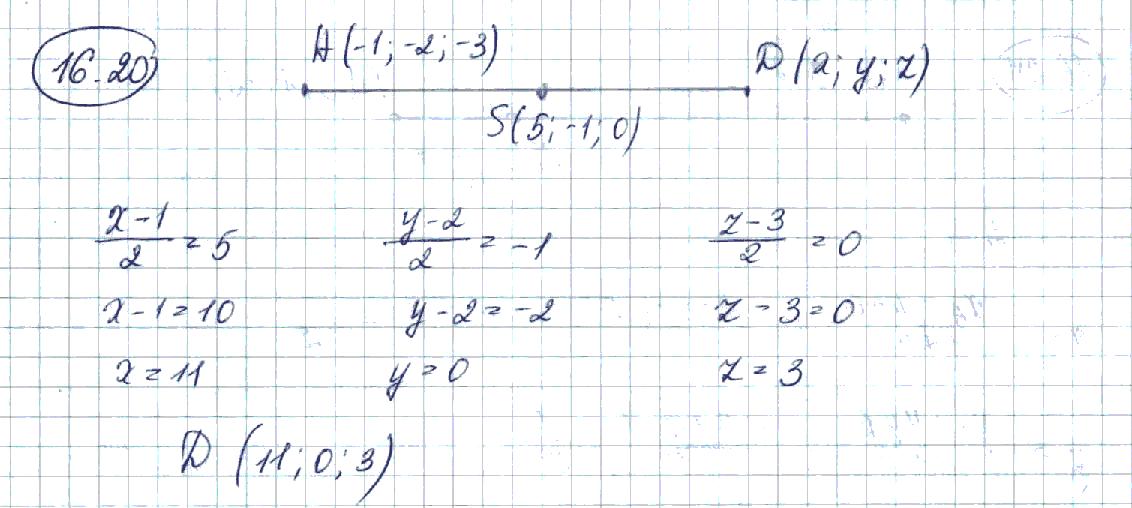 16.20
A (-1; -2; -3)
D (x; y; z)
S(5; -1; 0)
(x-1)/2 = 5    (y-2)/2 = -1    (z-3)/2 = 0
x-1=10    y-2=-2    z-3=0
x=11    y=0    z=3
D (11; 0; 3)